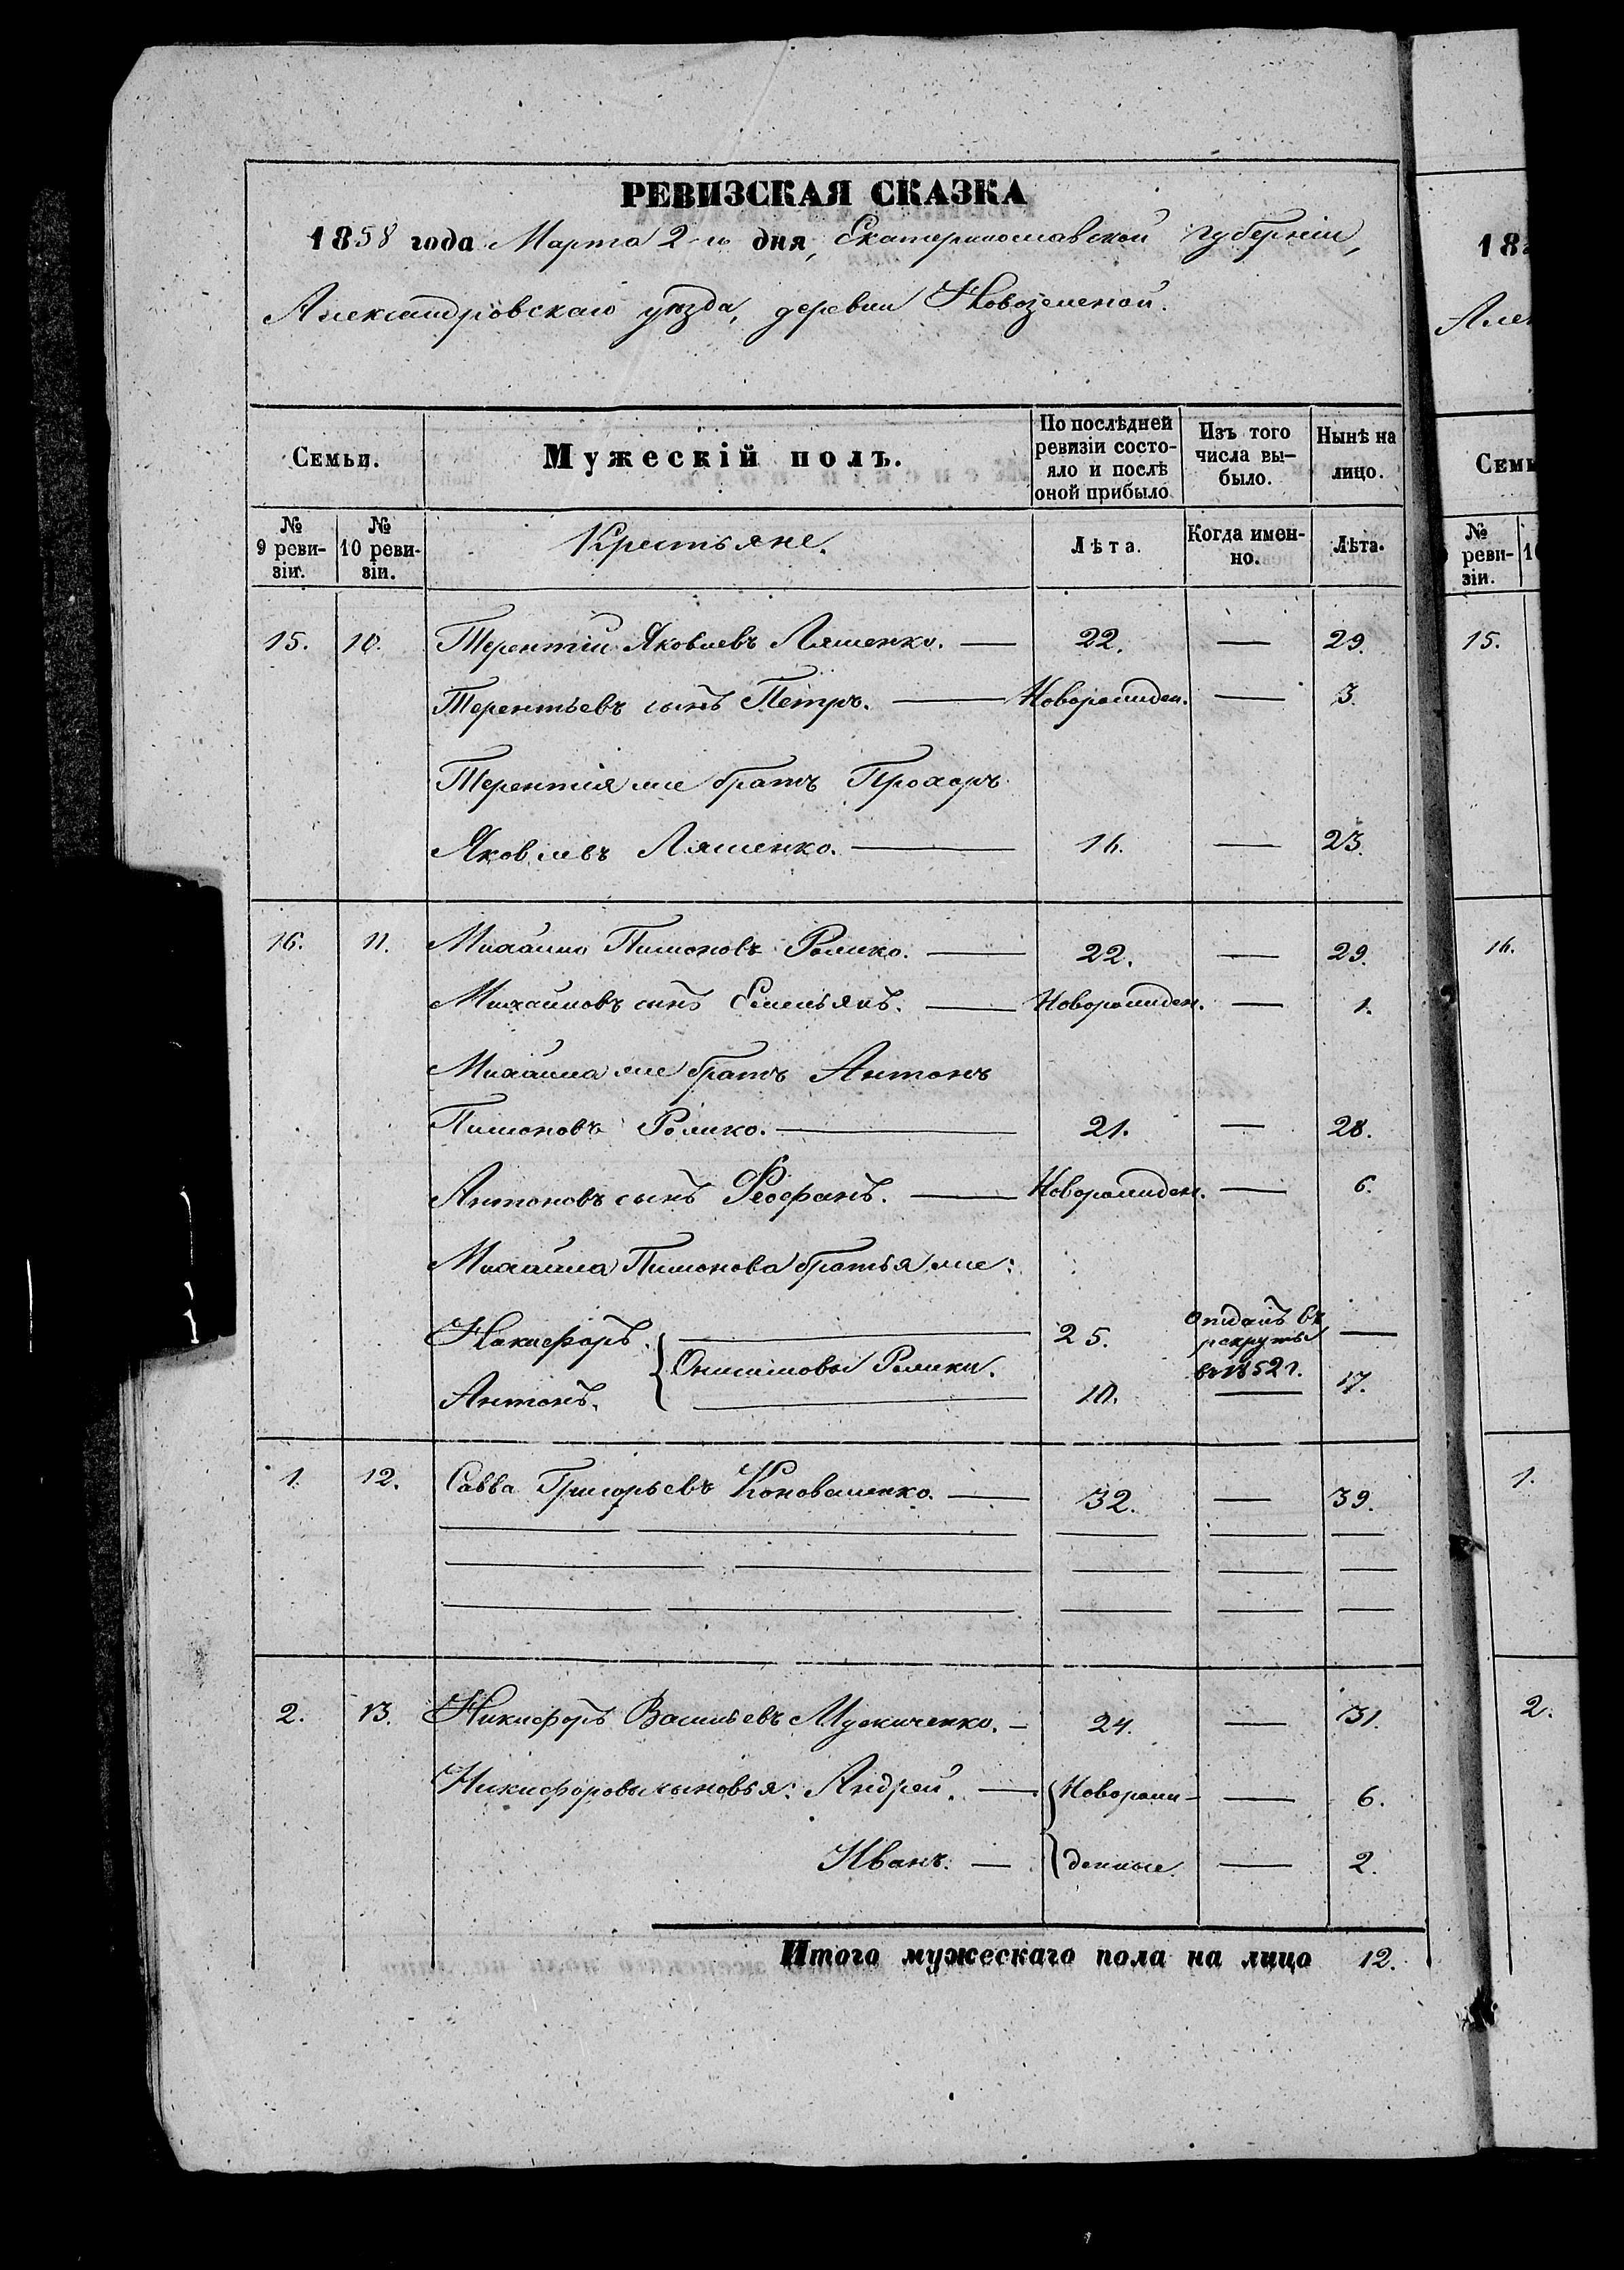 РЕВИЗСКАЯ СКАЗКА
1858 года Марта 2-го дня, Екатеринославской губерніи,
Александровскаго уѣзда, деревни
Семьи.
Мужескій полъ.
По послѣдней ревизіи состояло и послѣ оной прибыло
Изъ того числа вы-было.
Нынѣ на лицо.
№ 9 реви-зіи.
№ 10 реви-зіи.
Крестьяне.
Лѣта.
Когда имен-но.
Лѣта.
15. 10. Терентій Яковлевъ Ляшенко. — 22. — 29.
Терентьевъ сынъ Петръ. — Новорожден. — 3.
Терентія же братъ Прохоръ
Яковлевъ Ляшенко. — 16. — 23.
16. 11. Михайло Пимоновъ — 22. — 29.
Михайловъ сынъ Емельянъ. — Новорожден. — 1.
Михайла же братъ Антонъ
Пимоновъ — 21. — 28.
Антоновъ сынъ Феофанъ. — Новорожден. — 6.
Михайла Пимонова братья же:
Никифоръ. — 25. отданъ въ рекруты въ 1852 г. —
Онисимовы
Антонъ. — 10. — 17.
1. 12. Савва Григорьевъ Коноваленко. — 32. — 39.
2. 13. Никифоръ Васильевъ — 24. — 31.
Никифоровы сыновья: Андрей. — Новорож- — 6.
Иванъ. — денные. — 2.
Итого мужескаго пола на лицо 12.
18
Але
Семь
№ реви-зіи.
1
15.
16.
1.
2.